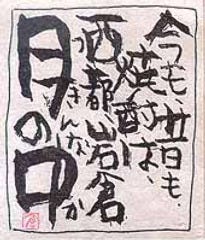 今も、昔も、
焼酎は、
西都、岩倉
月の中
つきんなか